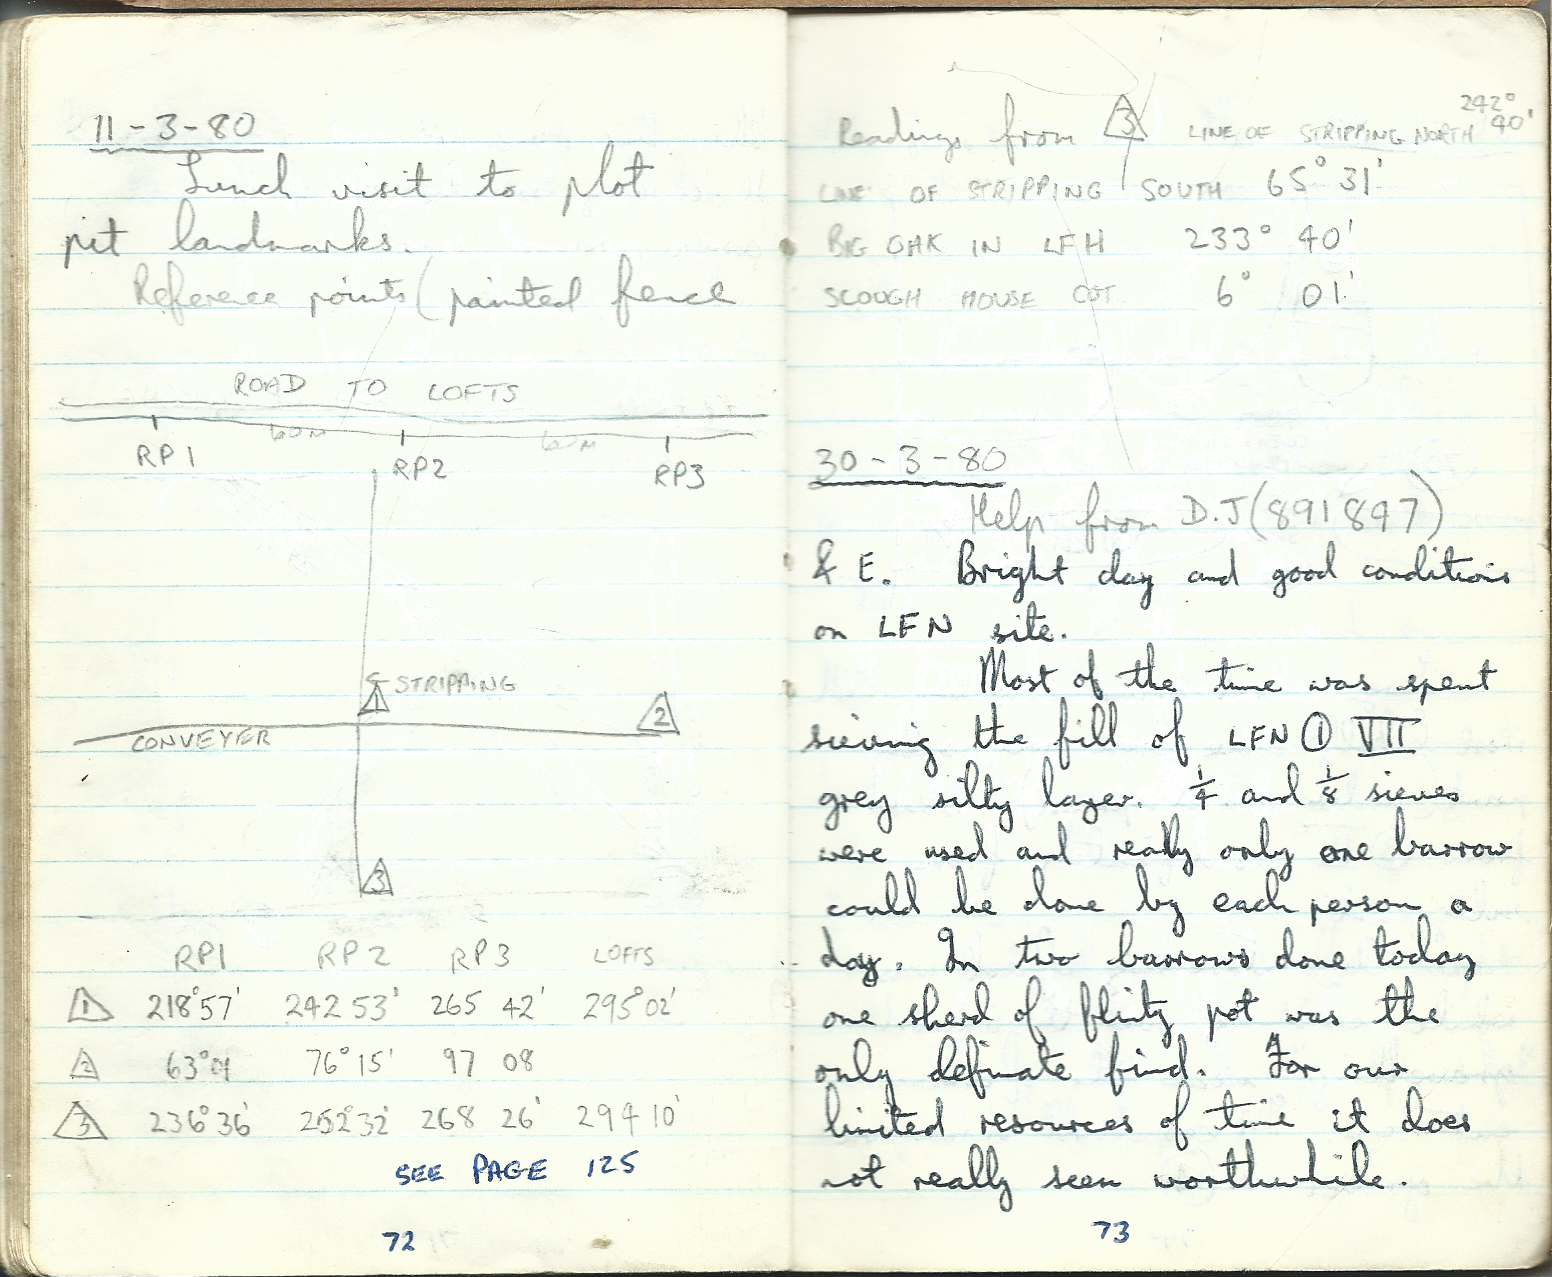 11-3-80
Lunch visit to plot
pit landmarks.
Reference points (painted fence
ROAD TO LOFTS
60m 60m
RP1 RP2 RP3
STRIPPING
1 2
CONVEYER
3
RP1 RP2 RP3 LOFTS
1 218°57' 242 53' 265 42' 295°02'
2 63°01 76°15' 97 08
3 236°36' 252°32' 268 26' 294 10'
SEE PAGE 125
72
242°
40'
Readings from 3 LINE OF STRIPPING NORTH
LINE OF STRIPPING SOUTH 65° 31'
BIG OAK IN LFH 233° 40'
SLOUGH HOUSE COT 6° 01'
30-3-80
Help from D.J (891897)
& E. Bright day and good conditions
on LFN site.
Most of the time was spent
sieving the fill of LFN ① VII
grey silty layer. 1/4 and 1/8 sieves
were used and really only one barrow
could be done by each person a
day. In two barrows done today
one sherd of flinty pot was the
only definate find. For our
limited resources of time it does
not really seem worthwhile.
73